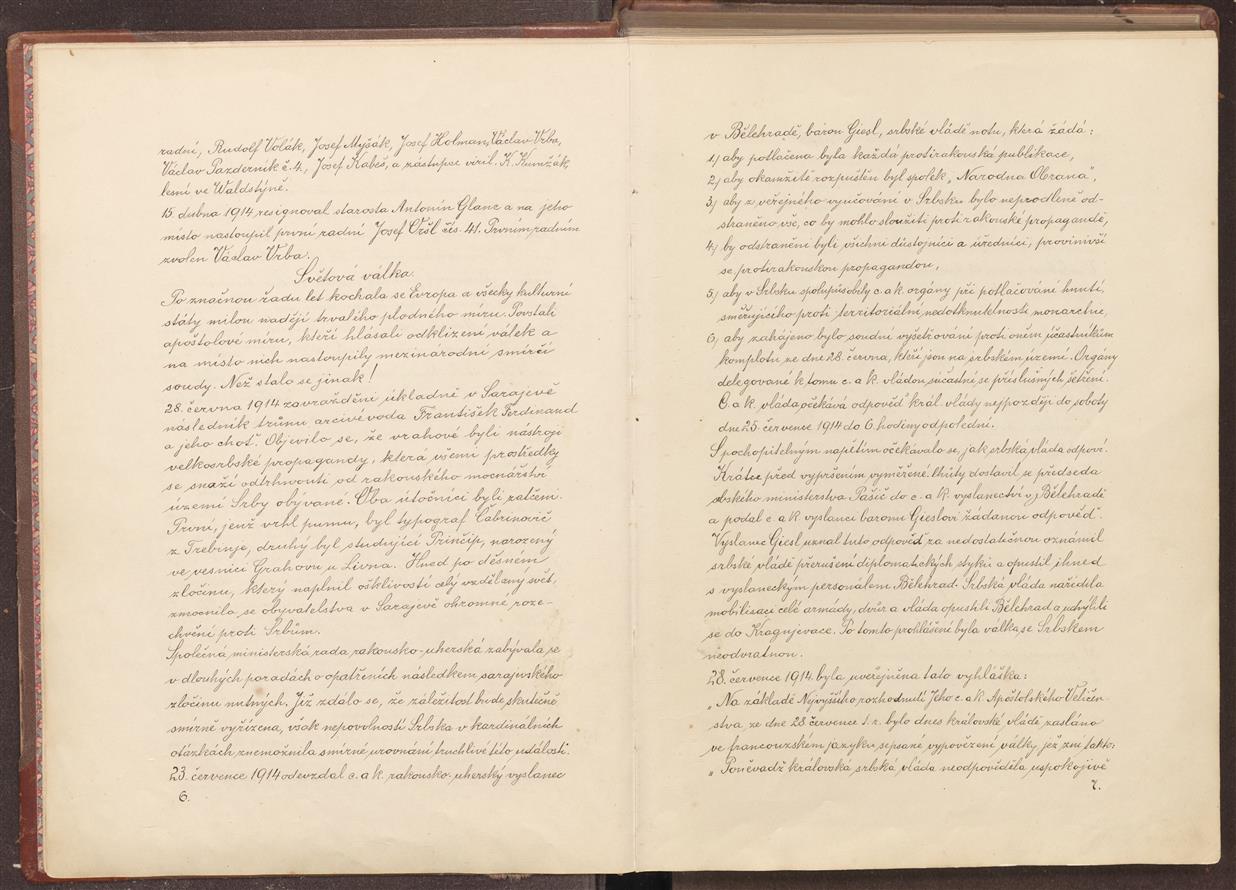 radní, Rudolf Volák, Josef Myšák, Josef Holman, Václav Vrba,
Václav Pazderník č. 4., Josef Kabeš, a zástupce viril. K. Kunžák,
lesní ve Waldstýně.
15. dubna 1914 resignoval starosta Antonín Glanc a na jeho
místo nastoupil první radní Josef Oršl čís. 41. Prvním radním
zvolen Václav Vrba.
Světová válka.
Po značnou řadu let kochala se Evropa a všecky kulturní
státy milou nadějí trvalého plodného míru. Povstali
apoštolové míru, kteří hlásali odklizení válek a
na místo nich nastoupily mezinárodní smírčí
soudy. Než stalo se jinak!
28. června 1914 zavražděni úkladně v Sarajevě
následník trůnu arcivévoda František Ferdinand
a jeho choť. Objevilo se, že vrahové byli nástroji
velkosrbské propagandy, která všemi prostředky
se snaží odtrhnouti od rakouského mocnářství
území Srby obývané. Oba útočníci byli zatčeni.
První, jenž vrhl pumu, byl typograf Čabrinovič
z Trebinje, druhý byl studující Prinčip, narozený
ve vesnici Grahovu u Livna. Hned po děsném
zločinu, který naplnil ošklivostí celý vzdělaný svět,
zmocnilo se obyvatelstva v Sarajevě ohromné roze-
chvění proti Srbům.
Společná ministerská rada rakousko-uherská zabývala se
v dlouhých poradách o opatřeních následkem sarajevského
zločinu nutných. Již zdálo se, že záležitost bude skutečně
smírně vyřízena, však nepovolnost Srbska v kardinálních
otázkách znemožnila smírné urovnání truchlivé této události.
23. července 1914 odevzdal c. a k. rakousko-uherský vyslanec
6.
v Bělehradě, baron Giesl, srbské vládě notu, která žádá:
1.) aby potlačena byla každá protirakouská publikace,
2.) aby okamžitě rozpuštěn byl spolek „Narodna Obrana",
3.) aby z veřejného vyučování v Srbsku bylo neprodleně od-
straněno vše, co by mohlo sloužiti protirakouské propagandě,
4.) by odstraněni byli všichni důstojníci a úředníci, provinivší
se protirakouskou propagandou,
5.) aby v Srbsku spolupůsobily c. a k. orgány při potlačování hnutí,
směřujícího proti territoriální nedotknutelnosti monarchie,
6.) aby zahájeno bylo soudní vyšetřování proti oněm účastníkům
komplotu ze dne 28. června, kteří jsou na srbském území. Orgány
delegované k tomu c. a k. vládou súčastní se příslušných šetření.
C. a k. vláda očekává odpověď král. vlády nejpozději do soboty
dne 25. července 1914 do 6. hodiny odpolední.
S pochopitelným napětím očekávalo se, jak srbská vláda odpoví.
Krátce před vypršením vyměřené lhůty dostavil se předseda
srbského ministerstva Pašič do c. a k. vyslanectví v Bělehradě
a podal c. a k. vyslanci baronu Gieslovi žádanou odpověď.
Vyslanec Giesl uznal tuto odpověď za nedostatečnou oznámil
srbské vládě přerušení diplomatických styků a opustil ihned
s vyslaneckým personálem Bělehrad. Srbská vláda nařídila
mobilisaci celé armády, dvůr a vláda opustili Bělehrad a uchýlili
se do Kragujevace. Po tomto prohlášení byla válka se Srbskem
neodvratnou.
28. července 1914 byla uveřejněna tato vyhláška:
„Na základě Nejvyššího rozhodnutí Jeho c. a k. Apoštolského Veličen-
stva, ze dne 28. července t. r. bylo dnes královské vládě zasláno
ve francouzském jazyku sepsané vypovězení války, jež zní takto:
„Poněvadž královská srbská vláda neodpověděla uspokojivě
7.